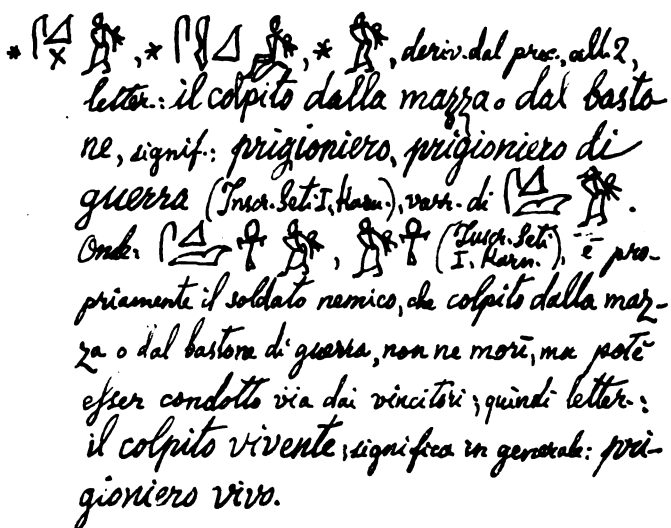 * , * , * , deriv. dal prec., all. 2,
letter.: il colpito dalla mazza o dal basto-
ne, signif.: prigioniero, prigioniero di
guerra (Inscr. Seti I, Karn.), varr. di .
Onde: , (Inscr. Seti
I, Karn.), è pro-
priamente il soldato nemico, che colpito dalla maz-
za o dal bastone di guerra, non ne morì, ma potè
esser condotto via dai vincitori; quindi letter.:
il colpito vivente; significa in generale: pri-
gioniero vivo.